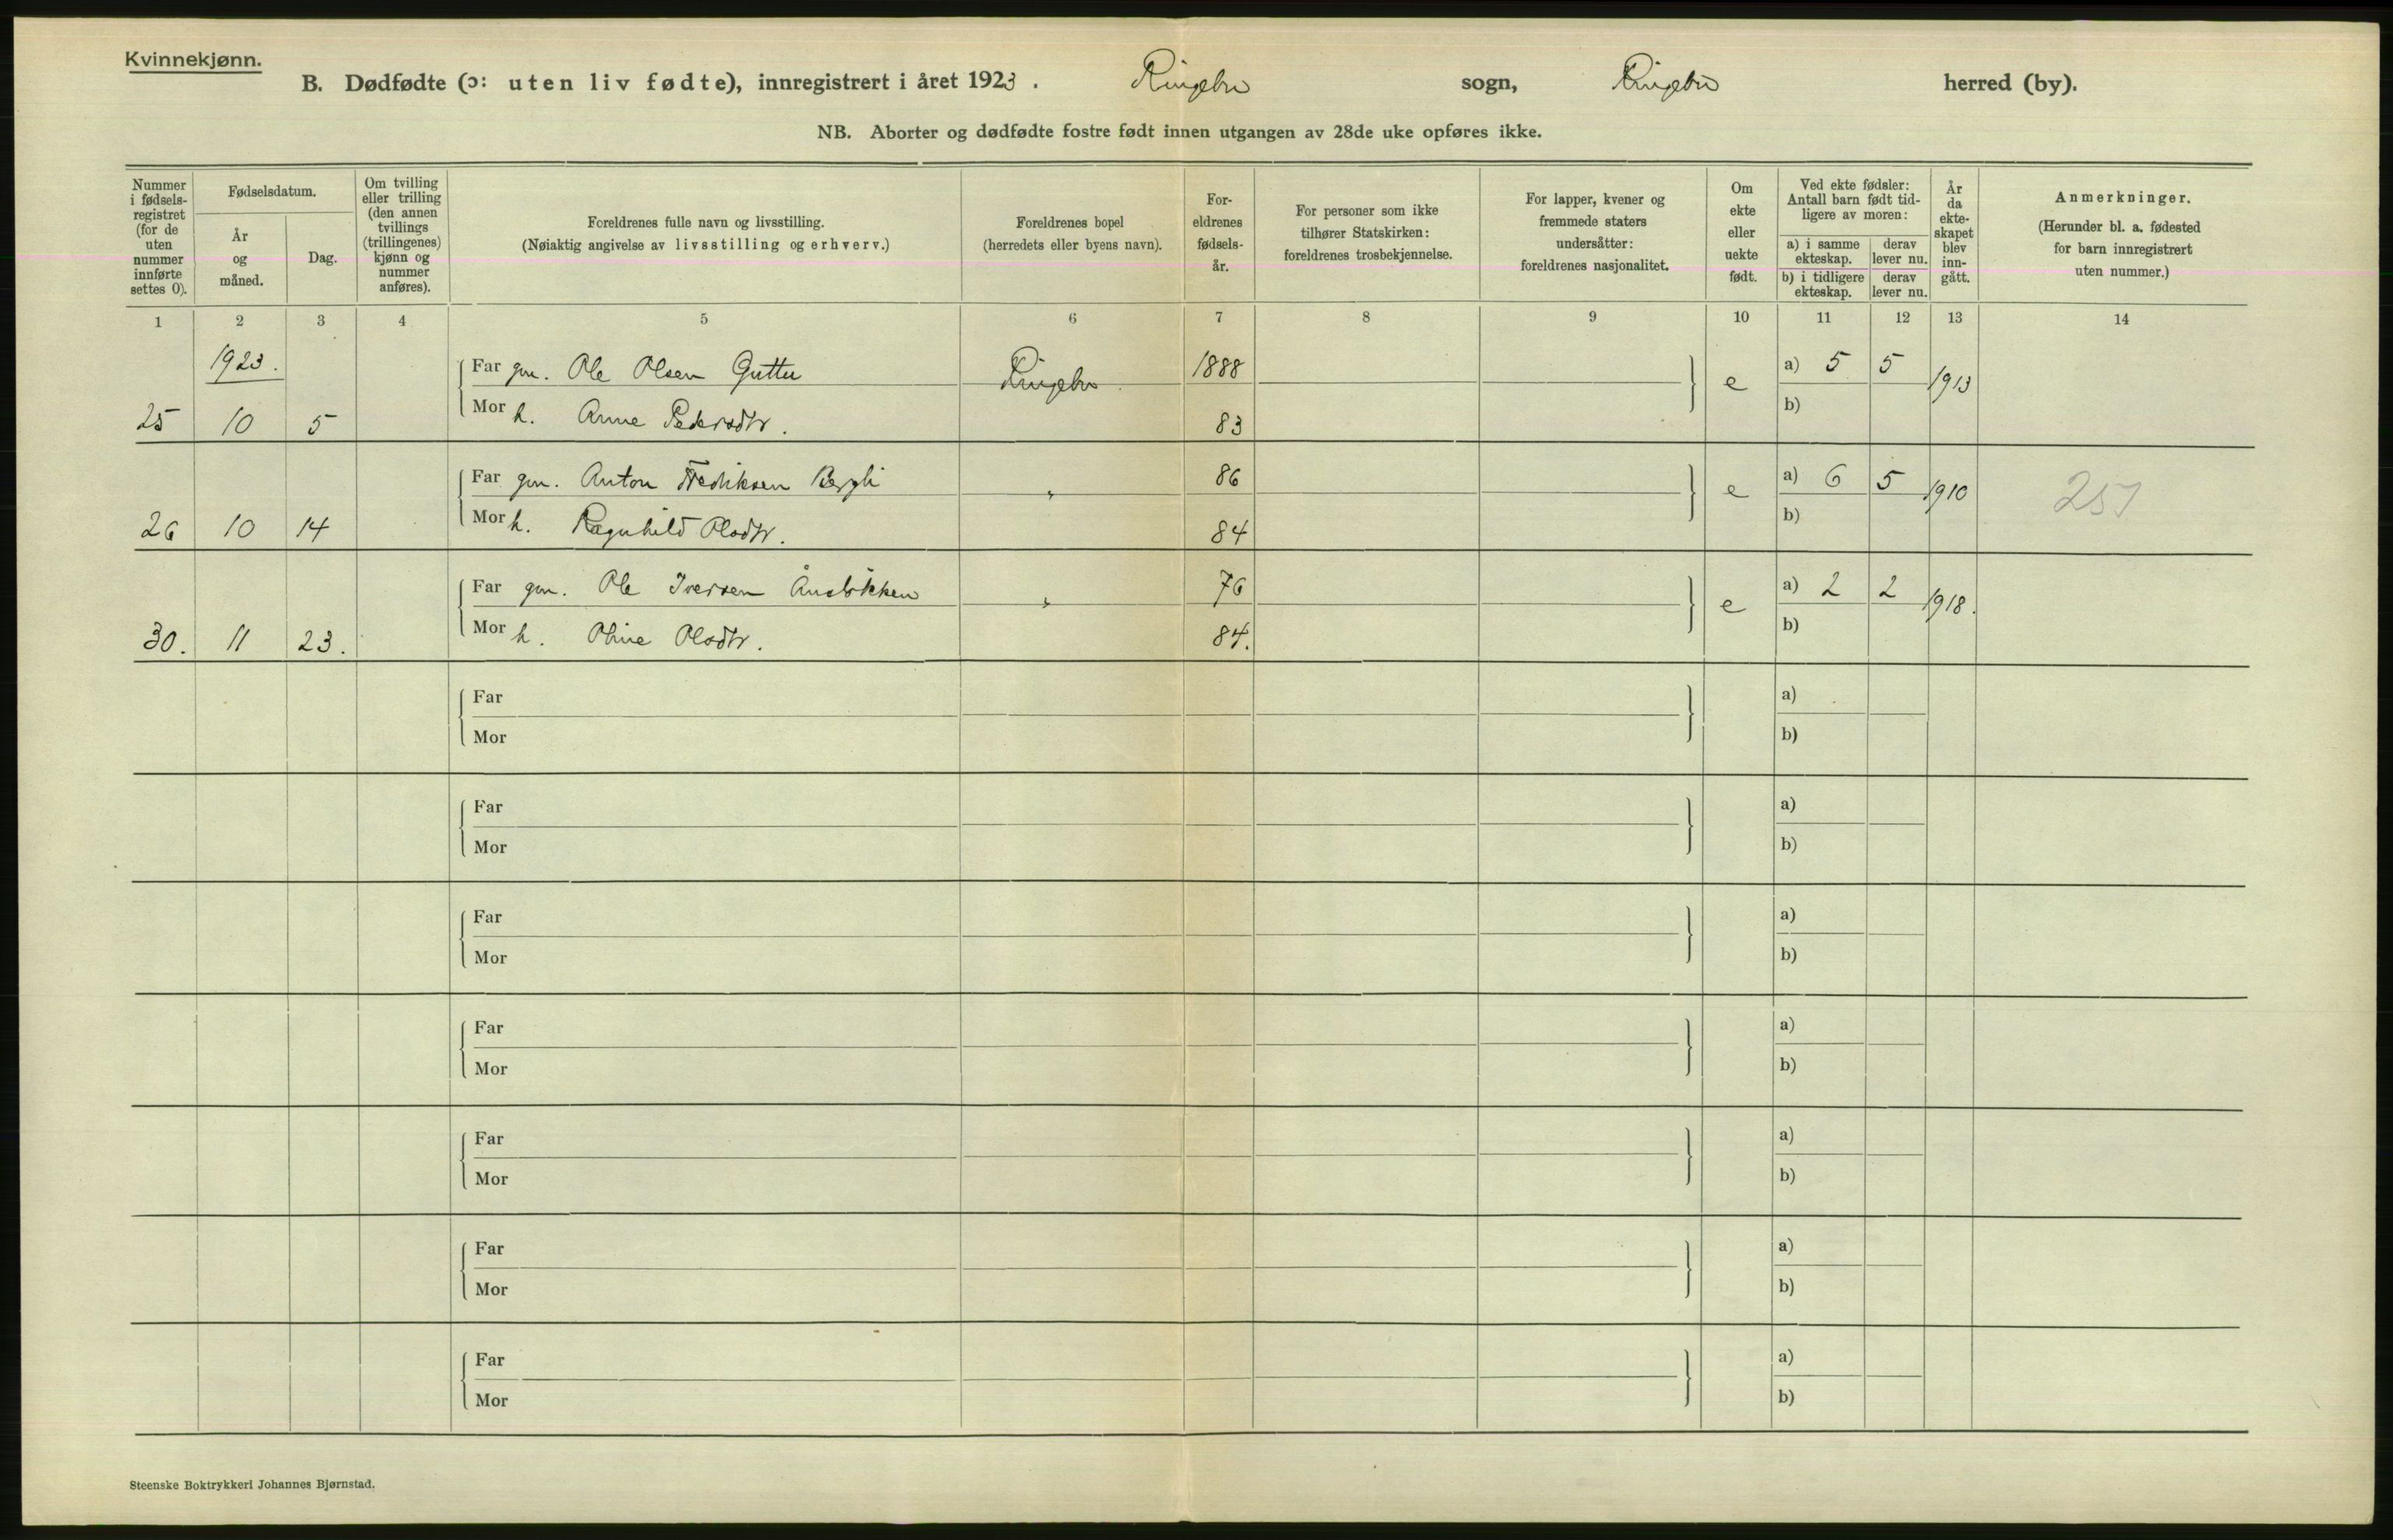 Kvinnekjønn.
B. Dødfødte (ɔ: uten liv fødte), innregistrert i året 1923. Ringebu sogn, Ringebu herred (by).
NB. Aborter og dødfødte fostre født innen utgangen av 28de uke opføres ikke.
Nummer i fødsels-registret (for de uten nummer innførte settes 0).
Fødselsdatum.
År og måned.
Dag.
Om tvilling eller trilling (den annen tvillings (trillingenes) kjønn og nummer anføres).
Foreldrenes fulle navn og livsstilling.
(Nøiaktig angivelse av livsstilling og erhverv.)
Foreldrenes bopel
(herredets eller byens navn).
For-eldrenes fødsels-år.
For personer som ikke tilhører Statskirken: foreldrenes trosbekjennelse.
For lapper, kvener og fremmede staters undersåtter: foreldrenes nasjonalitet.
Om ekte eller uekte født.
Ved ekte fødsler: Antall barn født tid-ligere av moren:
a) i samme ekteskap.
derav lever nu.
b) i tidligere ekteskap.
derav lever nu.
År da ekte-skapet blev inn-gått.
Anmerkninger.
(Herunder bl. a. fødested for barn innregistrert uten nummer.)
1 2 3 4 5 6 7 8 9 10 11 12 13 14
1923.
Far gm. Ole Olsen Guttu Ringebu 1888 a) 5 5
25 10 5 Mor h. Anne Pedersdtr. 83 e b) 1913
Far gm. Anton Fredriksen Bergli " 86 a) 6 5
26 10 14 Mor h. Ragnhild Olsdtr. 84 e b) 1910 251
Far gm. Ole Iversen " 76 a) 2 2
30. 11 23. Mor h. Oline Olsdtr. 84. e b) 1918.
Far a)
Mor b)
Far a)
Mor b)
Far a)
Mor b)
Far a)
Mor b)
Far a)
Mor b)
Far a)
Mor b)
Far a)
Mor b)
Steenske Boktrykkeri Johannes Bjørnstad.